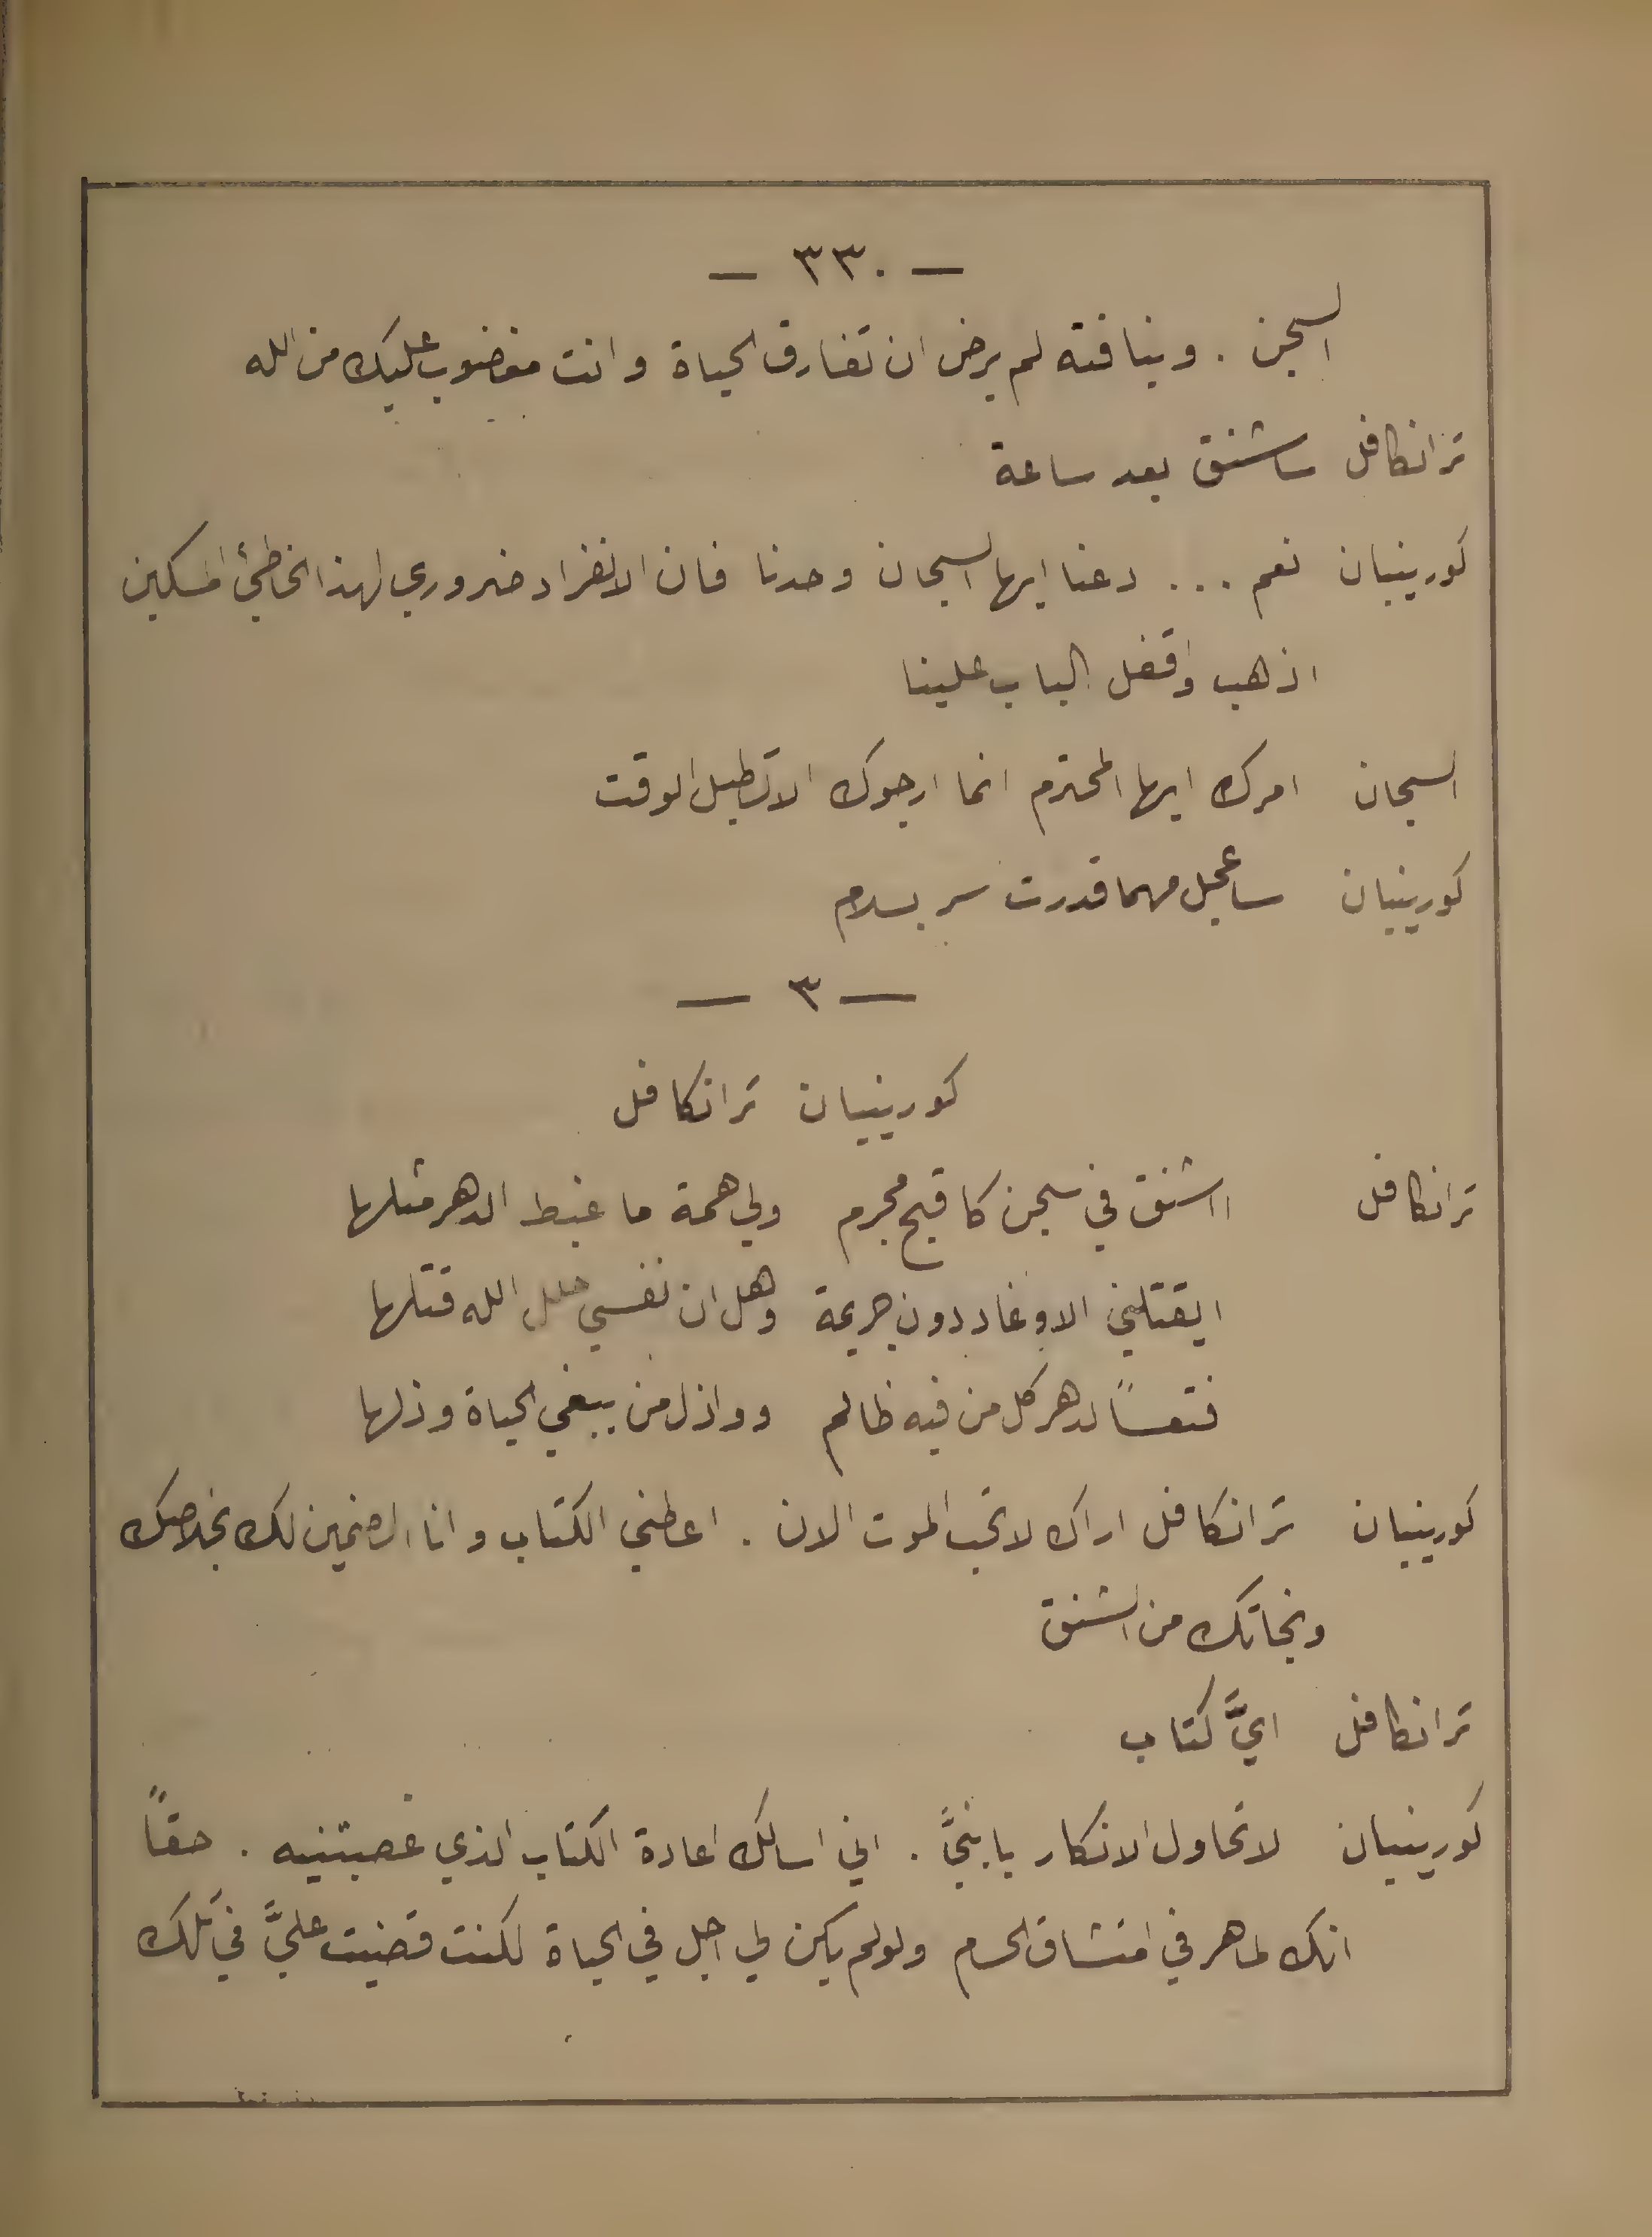 — ٣٣٠ —
السجن . وبنافته لم يرض ان تفارق الحياة وانت مغضوب عليك من الله
ترانكافل ساشنق بعد ساعة
كورينيان نعم ... دعنا ايها السجان وحدنا فان الانفراد ضروري لهذا الخاطئ المسكين
اذهب واقفل الباب علينا
السجان امرك ايها المحترم انما ارجوك الا تطيل الوقت
كورينيان ساعجل مهما قدرت سر بسلام
— ٣ —
كورينيان ترانكافل
ترانكافل ااشنق في سجن كاقبح مجرم ولي همة ما غبط الدهر مثلها
ايقتلني الاوغاد دون جريمة وهل ان نفسي حلل الله قتلها
فتعساً لدهر كل من فيه ظالم وواذل من يبغي الحياة وذلها
كورينيان ترانكافل اراك لا تحب الموت الان . اعطني الكتاب وانا الضمين لك بخلاصك
ونجاتك من الشنق
ترانكافل ايَّ كتاب
كورينيان لا تحاول الانكار يا بنيَّ . اني اسالك اعادة الكتاب الذي غصبتنيه . حقاً
انك لماهر في امتشاق الحسام ولو لم يكن لي اجل في الحياة لكنت قضيت عليَّ في تلك